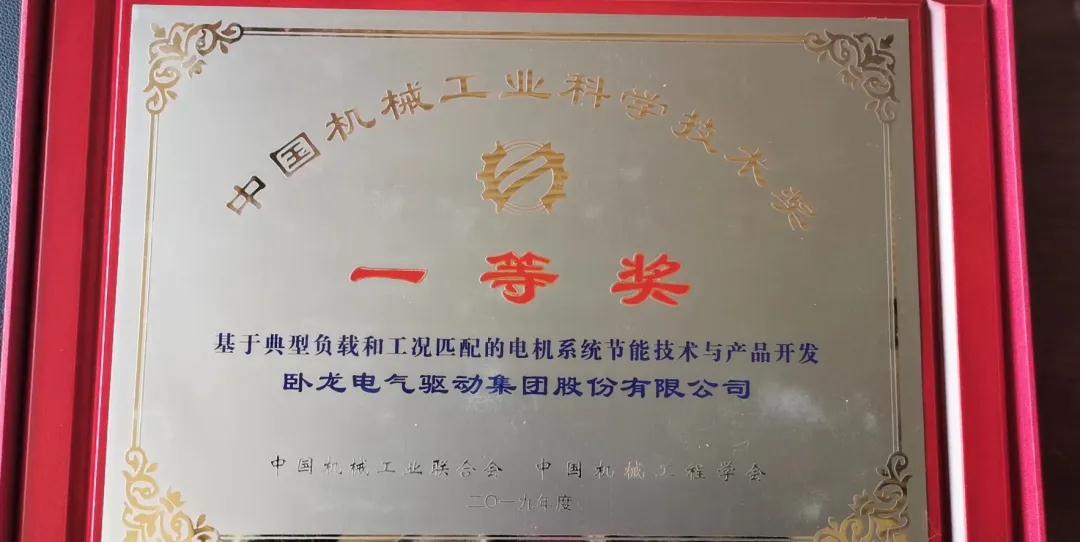 中国机械工业科学技术奖
一等奖
基于典型负载和工况匹配的电机系统节能技术与产品开发
卧龙电气驱动集团股份有限公司
中国机械工业联合会 中国机械工程学会
二〇一九年度